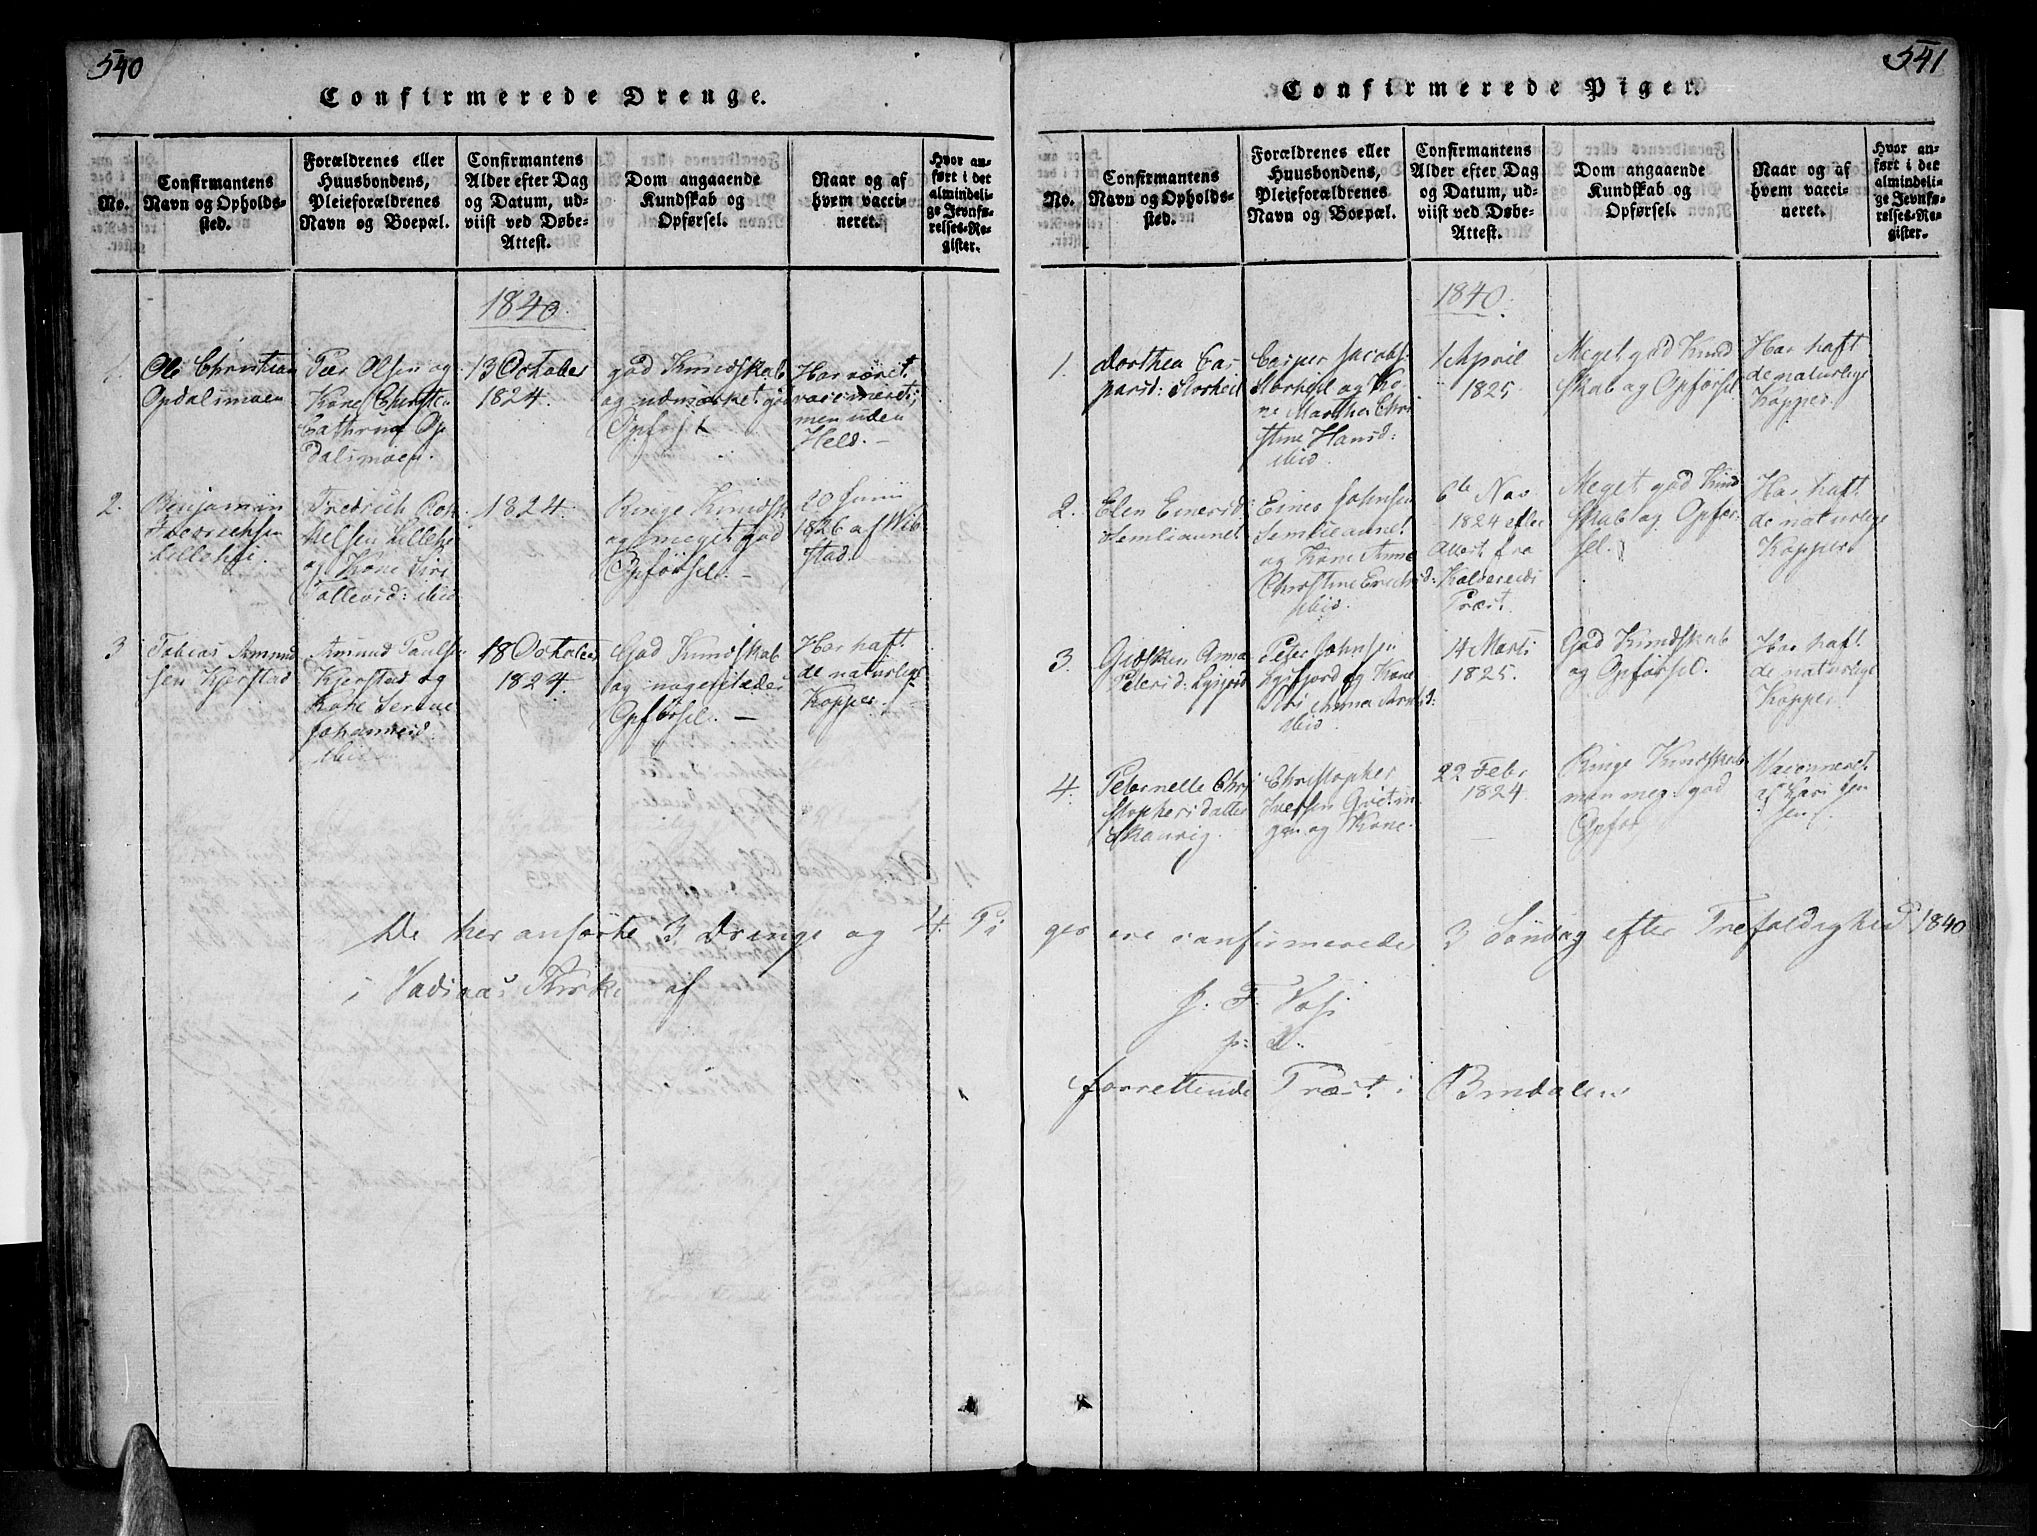 540
Confirmerede Drenge.
No.
Confirmantens
Navn og Opholds-
sted.
Forældrenes eller
Huusbondens,
Pleieforældrenes
Navn og Boepæl.
Confirmantens
Alder efter Dag
og Datum, ud-
viist ved Døbe-
Attest.
Dom angaaende
Kundskab og
Opførsel.
Naar og af
hvem vacci-
neret.
Hvor an-
ført i det
almindeli-
ge Jevnfø-
relses-Re-
gister.
1840.
1.
Ole Christian
Opdalsmoen
Peer Olsen og
Kone
Cathrina Op
dalsmoen.
13 October
1824.
god Kundskab
og udmærket god
Opførsel
Har været
vaccineret,
men uden
Held. -
2.
Benjamin
Fredrichsen
Lillehei.
Fredrich
Lillehei
og Kone Siri
Tollevsd: ibid
1824.
Ringe Kundsk
og meget god
Opførsel. -
20 Junii
1826 af Wib
stad.
3
Tobias Amund
sen Kjerstad
Amund Paulse
Kjerstad og
Kone Serene
Johannesd.
ibid
18 October
1824.
God Kundskab
og
Opførsel. -
Har haft
de naturlige
Kopper.
De her anførte 3 Drenge og 4 Pi
i Vadsaas Kirke af
541
Confirmerede Piger.
No.
Confirmantens
Navn og Opholds-
sted.
Forældrenes eller
Huusbondens,
Pleieforældrenes
Navn og Boepæl.
Confirmantens
Alder efter Dag
og Datum, ud-
viist ved Døbe-
Attest.
Dom angaaende
Kundskab og
Opførsel.
Naar og af
hvem vacci-
neret.
Hvor an-
ført i det
almindeli-
ge Jevnfø-
relses-Re-
gister.
1840.
1.
Dorthea Cas
parsd: Storheil
Casper Jacobs:
Storheil og Ko-
ne Martha Chri
stine Hansd:
ibid.
1 April
1825
Meget god Kund
skab og Opførsel
Har haft
de naturlige
Kopper.
2.
Elen Einersd
Semliaunet
Einer Johnsen
Semliaunet
og Kone Anne
Christine Ericksd:
ibid.
6te Nov
1824 efter
Attest fra
Kolvereids
Præst.
Meget god Kund
skab og Opfør-
sel.
Har haft
de naturlige
Kopper.
3.
Gidsken Anna
Petersd:
Peter Johnsen
og Kone
Siri Anna
ibid.
14 Marts
1825.
God Kundskab
og Opførsel.
Har haft
de naturlige
Kopper.
4.
Peternelle Chri
stophersdatter
Skauvig.
Christopher
Iversen
gen og Kone.
22 Febr
1824
Ringe Kundskab
men meg. god
Opfør
Vaccineret
af
sen.
ger ere confirmerede 3 Søndag efter Trefoldighed 1840
J. F. Voss
p: t:
forrettende Præst i Bindalen